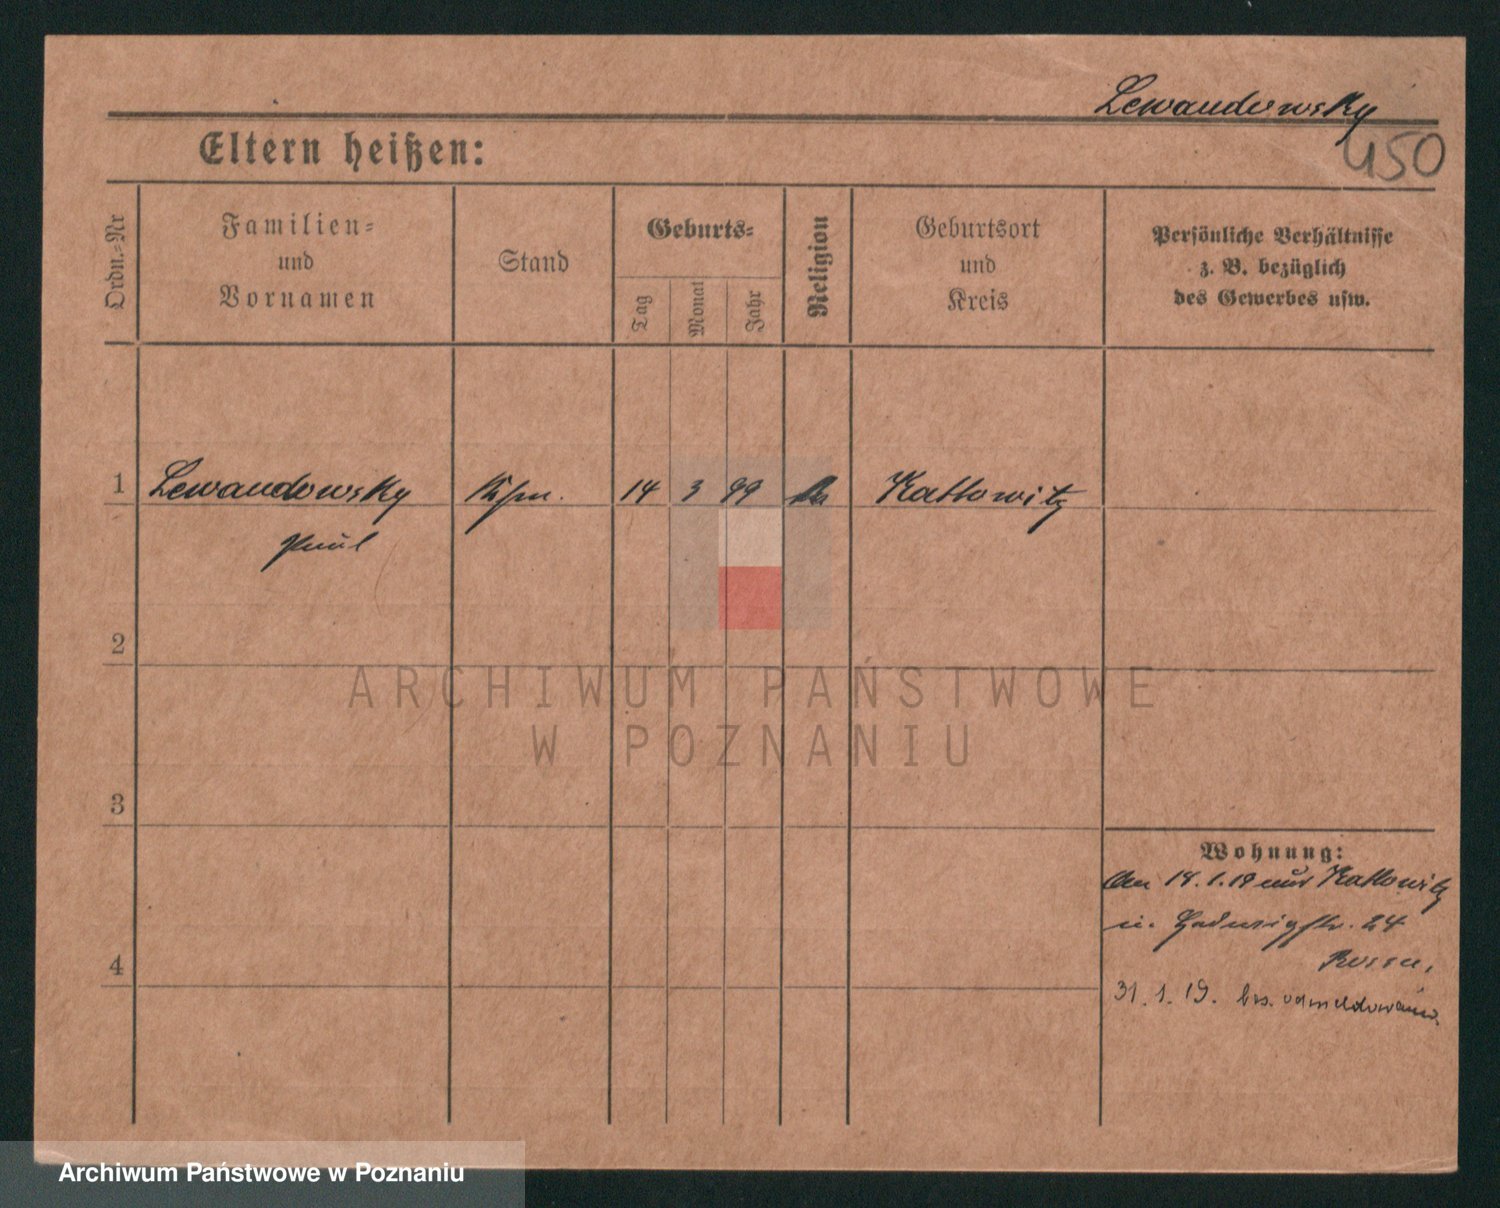 Lewandowsky
450
Eltern heißen:
Ordn.-Nr
Familien-
und
Vornamen
Stand
Geburts-
Tag
Monat
Jahr
Religion
Geburtsort
und
Kreis
Persönliche Verhältnisse
z. B. bezüglich
des Gewerbes usw.
1 Lewandowsky 14 3 99 Kattowitz
Paul
2
ARCHIWUM PAŃSTWOWE
W POZNANIU
3
Wohnung:
18.1.19 aus Kattowitz
n. Hedwigstr. 24
4
31.1.19. bez. odmeldowania
Archiwum Państwowe w Poznaniu